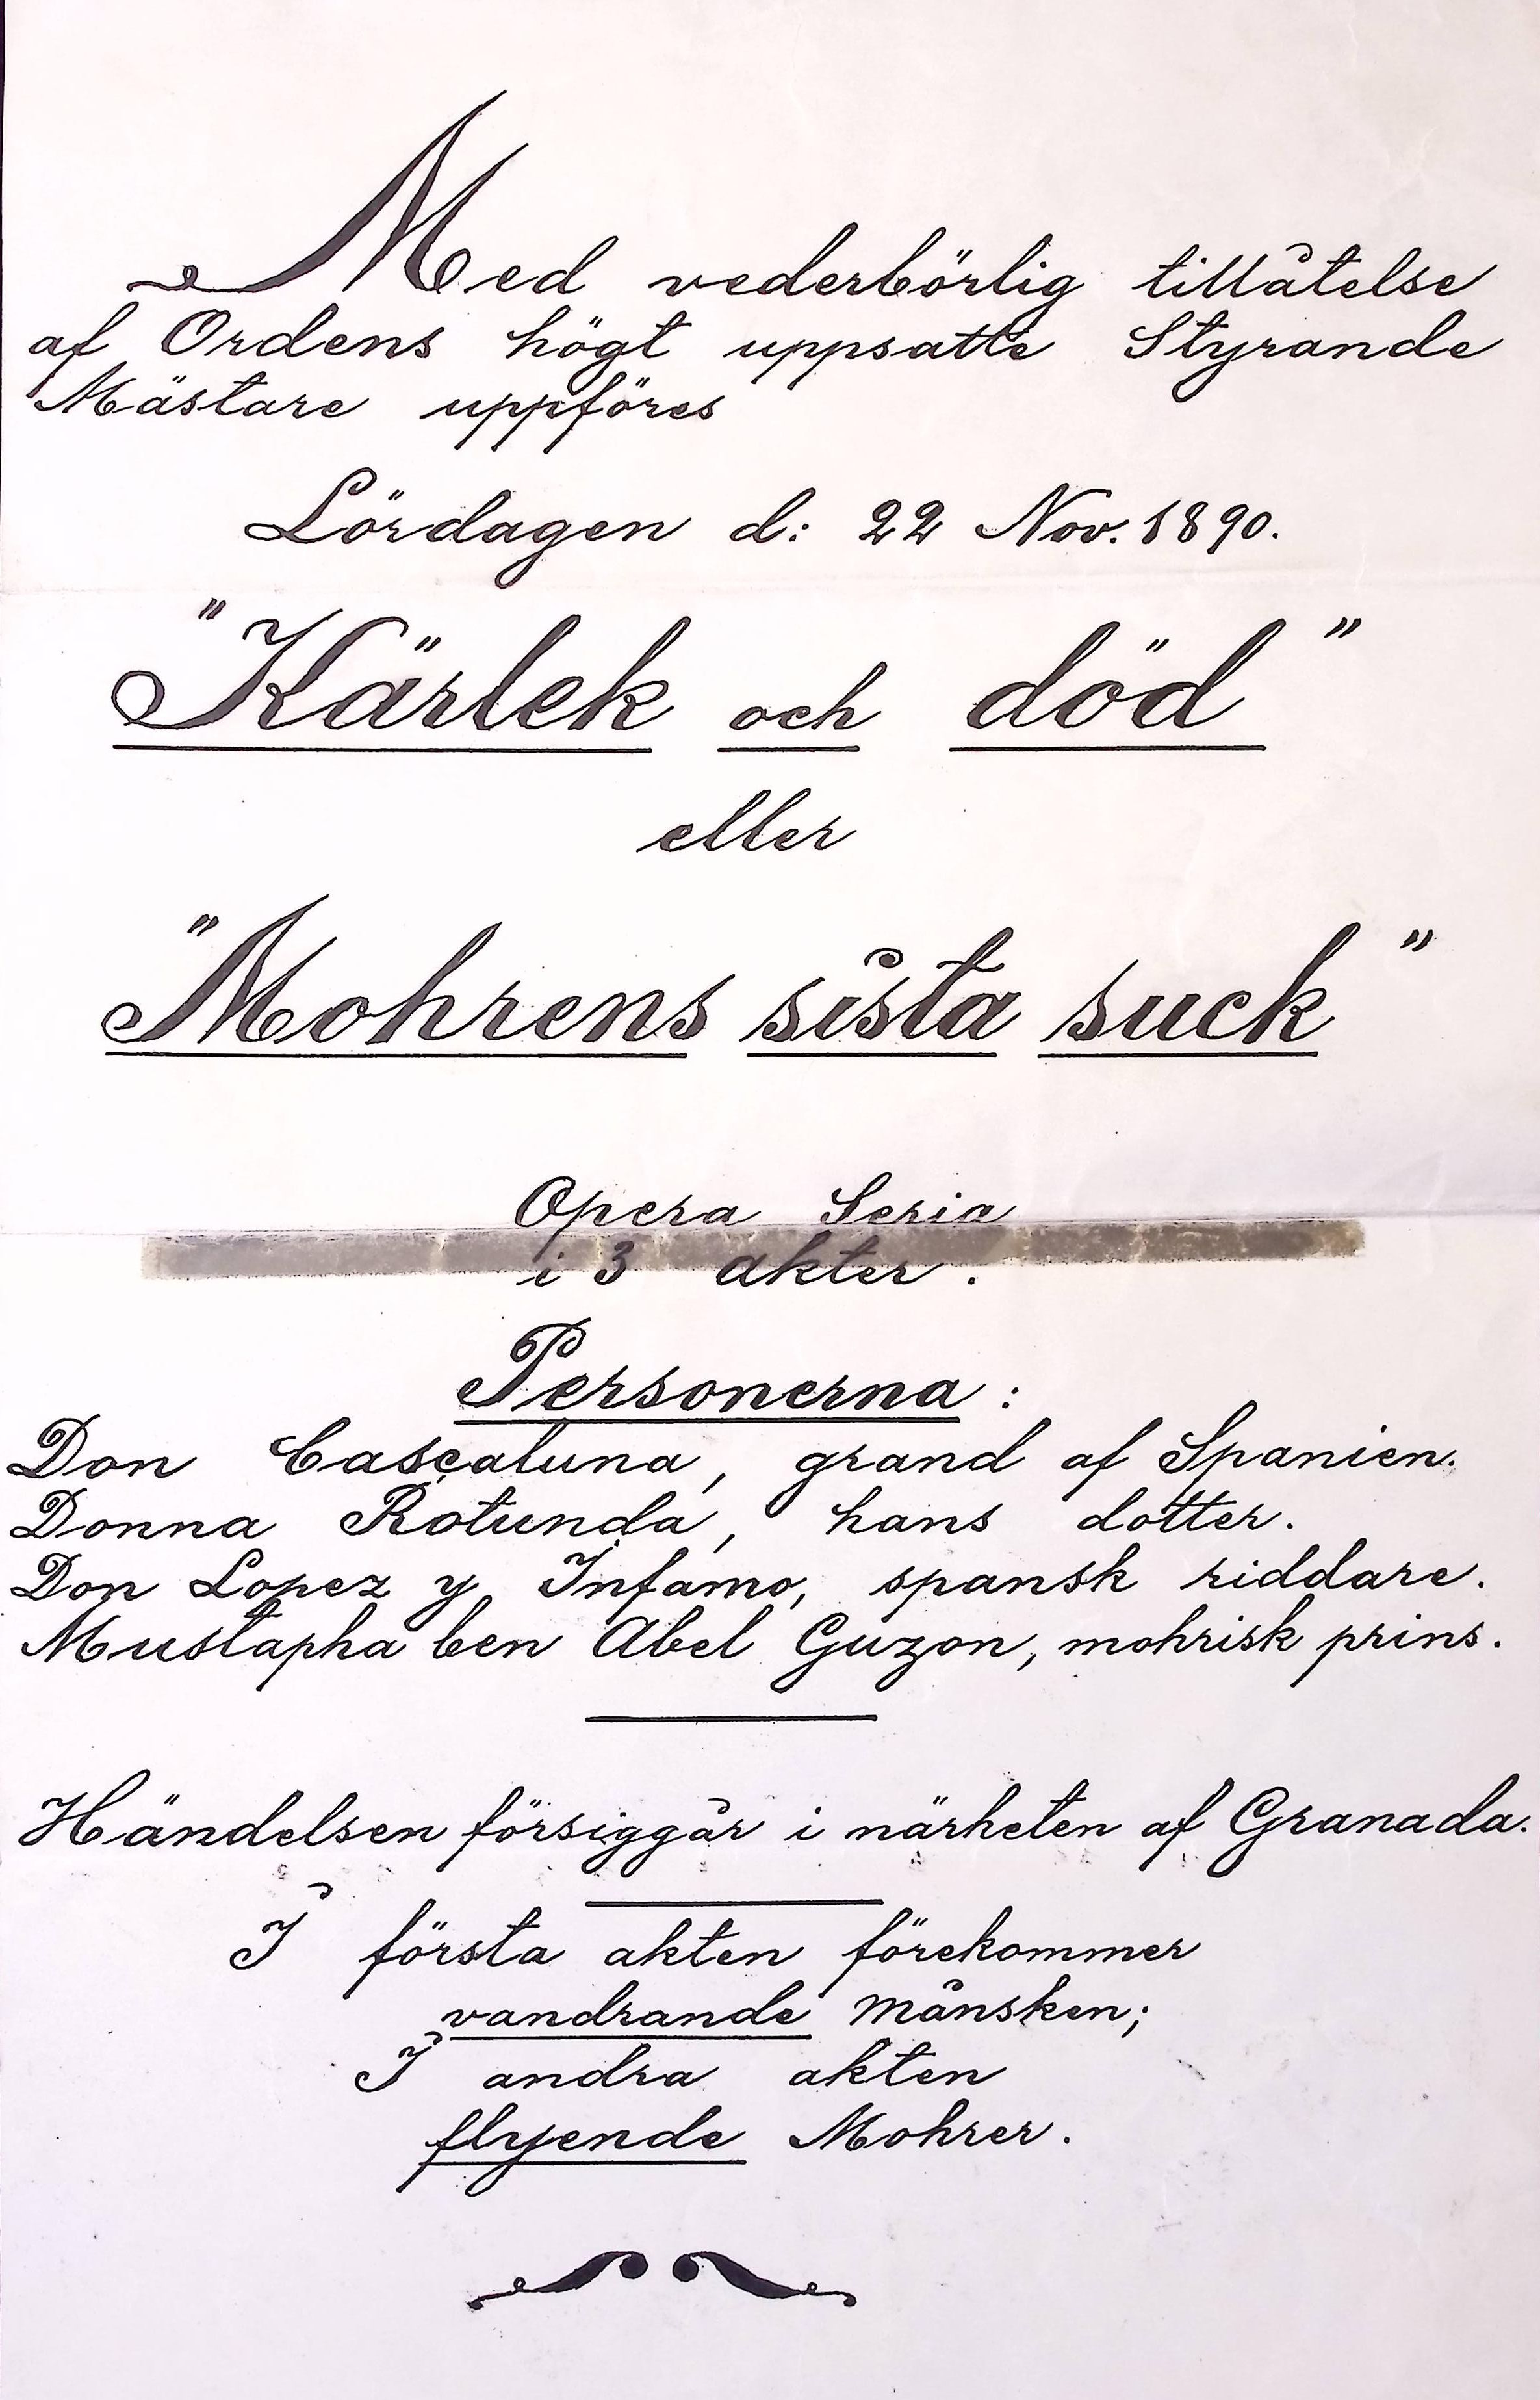 Med vederbörlig tillåtelse
af Ordens högt uppsatte Styrande
Mästare uppföres
Lördagen d: 22 Nov. 1890.
"Kärlek och död"
eller
"Mohrens sista suck"
Opera Seria
i 3 akter.
Personerna:
Don Cascaluna, grand af Spanien.
Donna Rotunda, hans dotter.
Don Lopez y Infamo, spansk riddare.
Mustapha ben Abel Guzon, mohrisk prins.
Händelsen försiggår i närheten af Granada.
I första akten förekommer
vandrande månsken;
I andra akten
flyende Mohrer.